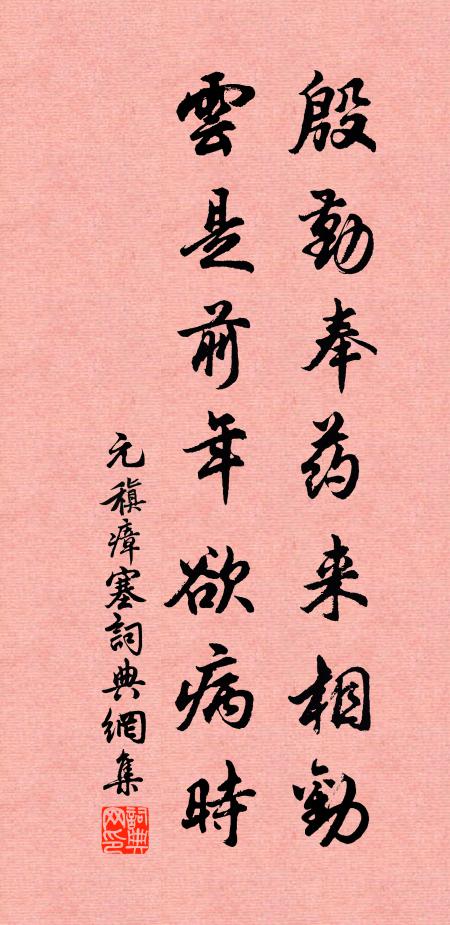 殷勤奉药来相劝
雲是前年欲病時
元稹瘴塞詞典網集
詞典网印